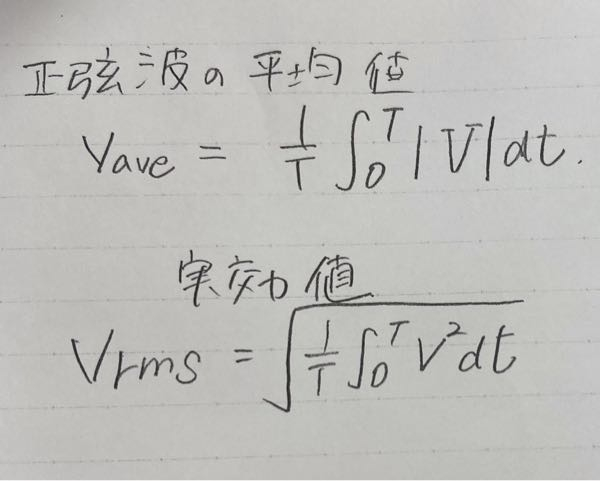 正弦波の平均値
Vave = 1/T ∫₀ᵀ |V|dt.
実効値
Vrms = √(1/T ∫₀ᵀ V²dt)